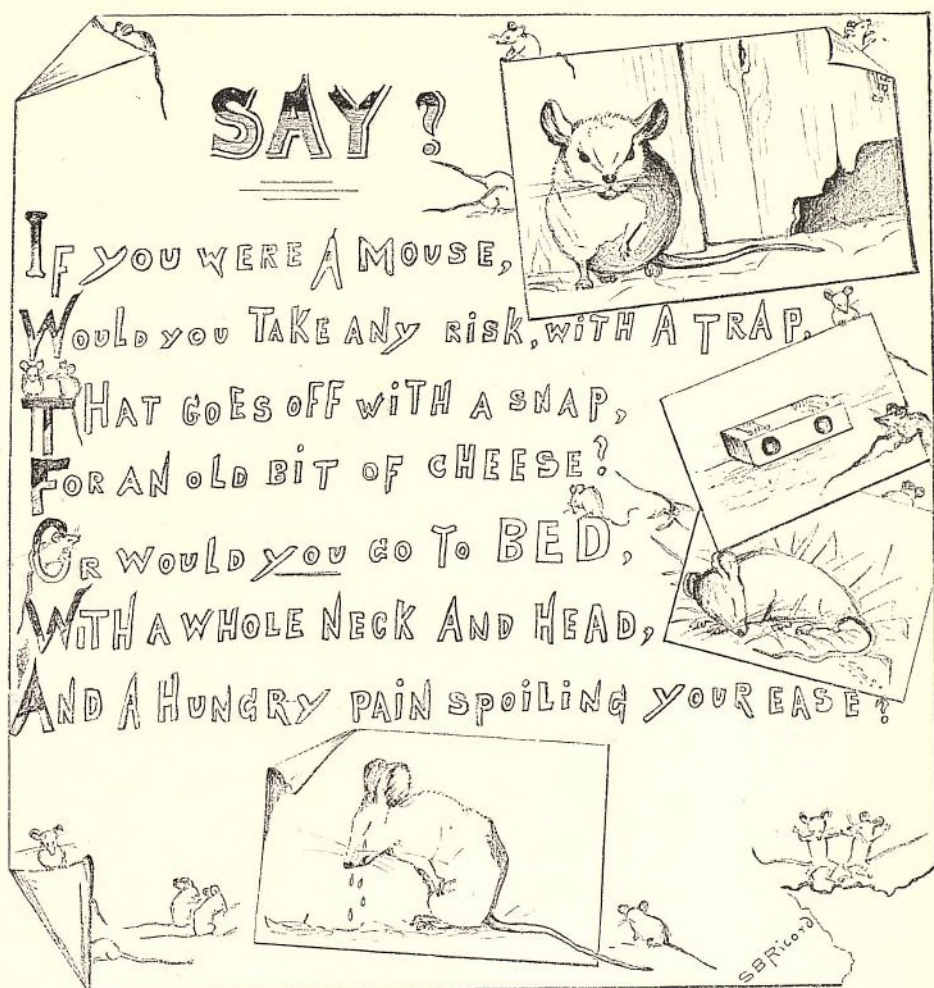 SAY?
IF YOU WERE A MOUSE,
WOULD YOU TAKE ANY RISK, WITH A TRAP,
THAT GOES OFF WITH A SNAP,
FOR AN OLD BIT OF CHEESE?
OR WOULD YOU GO TO BED,
WITH A WHOLE NECK AND HEAD,
AND A HUNGRY PAIN SPOILING YOUR EASE?
SBRicord